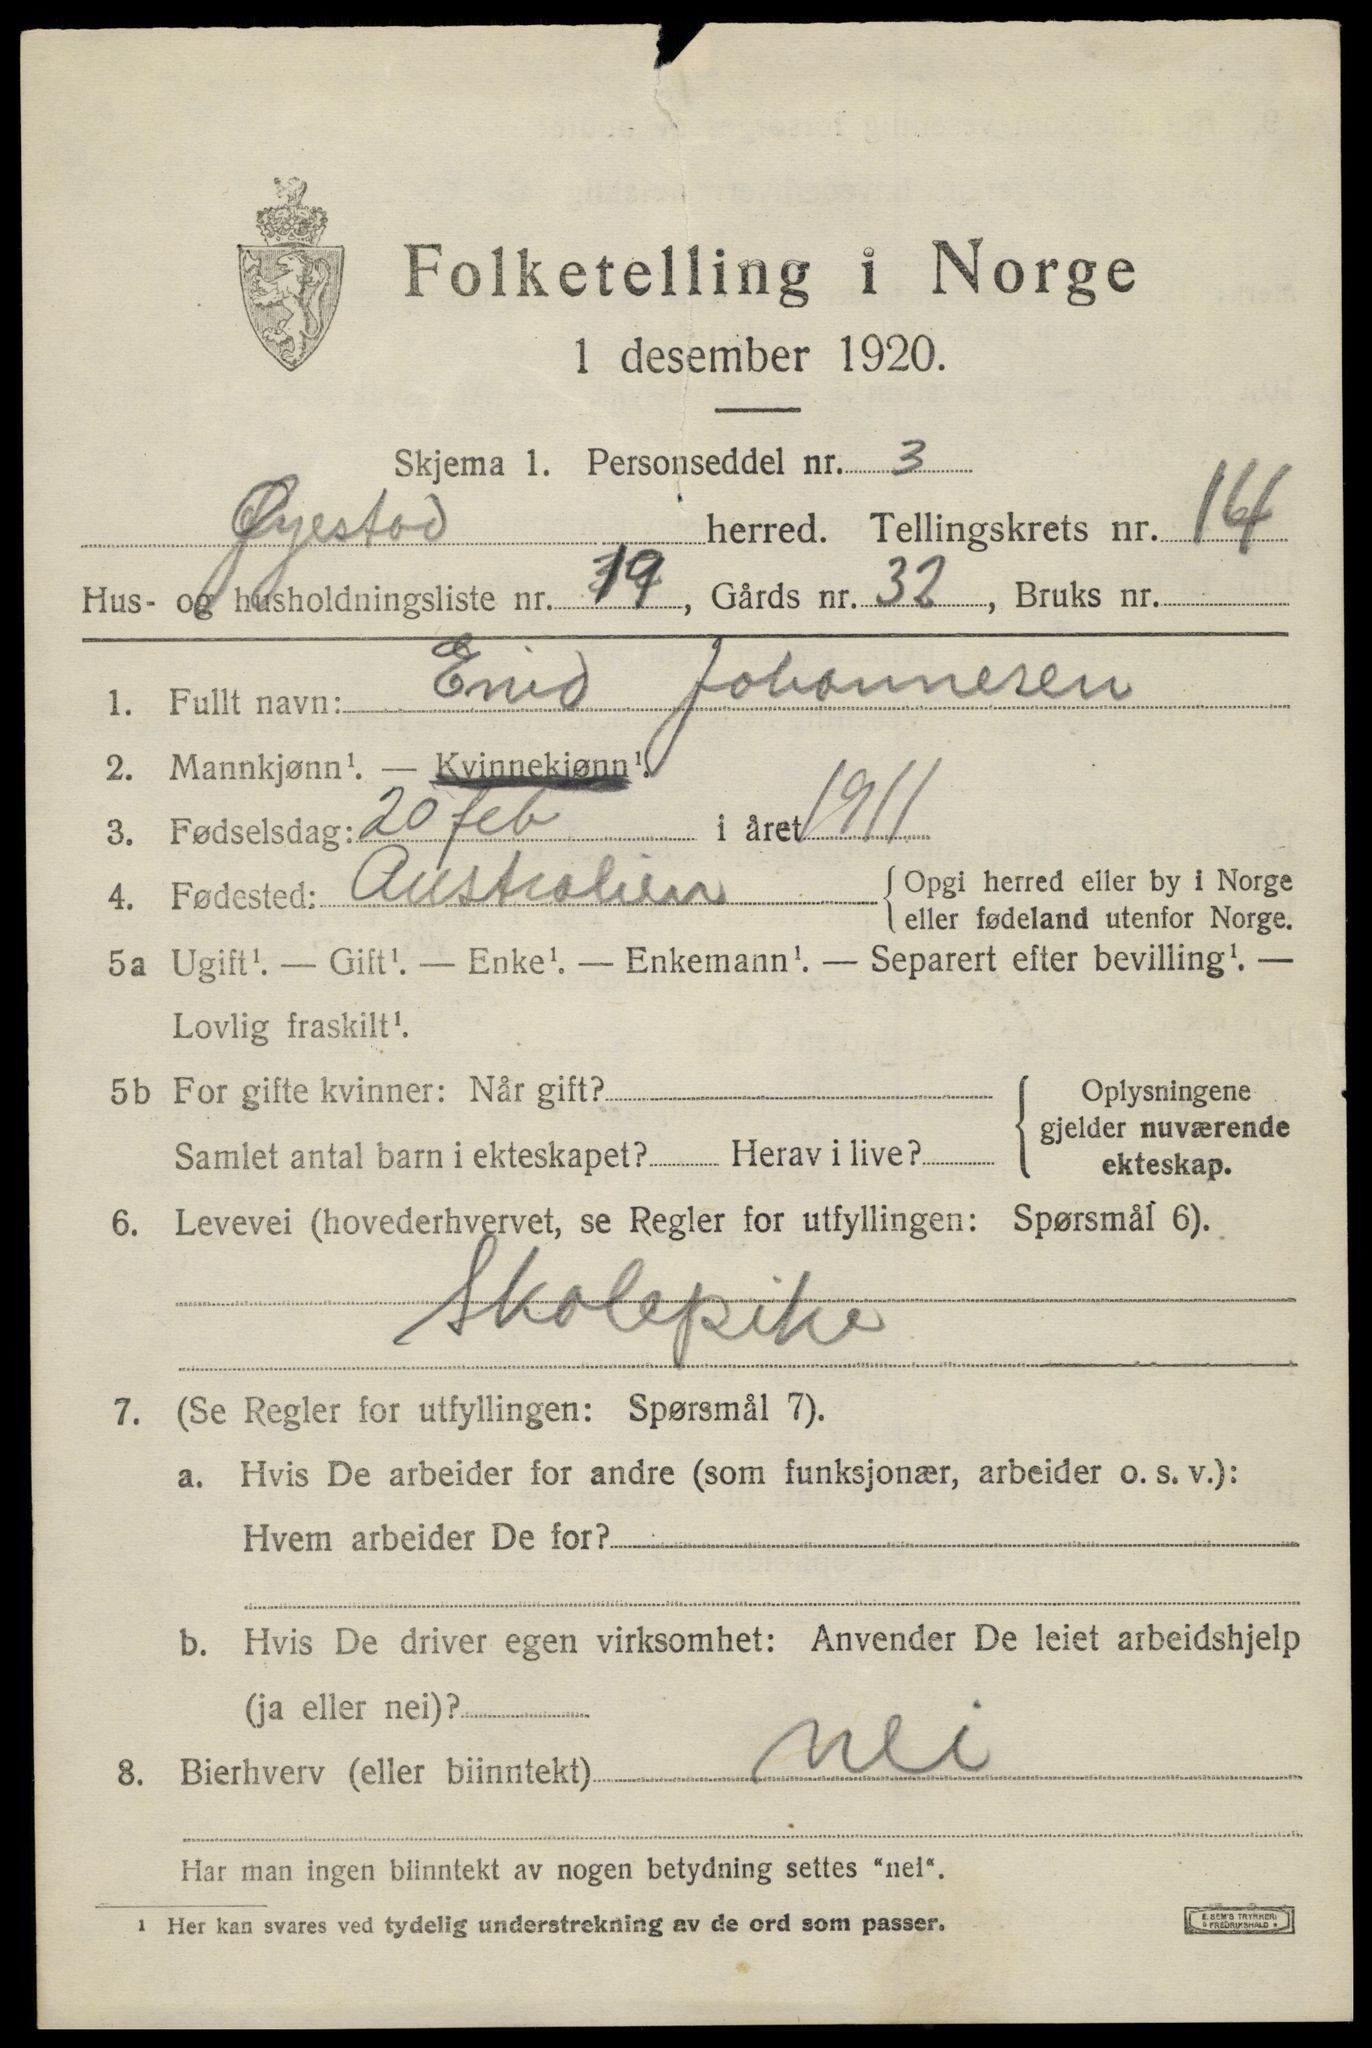 Folketelling i Norge
1 desember 1920.
Skjema 1. Personseddel nr. 3
Øyestad herred. Tellingskrets nr. 14
Hus- og husholdningsliste nr. 19, Gårds nr. 32, Bruks nr.
1. Fullt navn: Enid Johannesen
2. Mannkjønn¹. — Kvinnekjønn¹.
3. Fødselsdag: 20 feb i året 1911
4. Fødested: Australien { Opgi herred eller by i Norge
eller fødeland utenfor Norge.
5a Ugift¹. — Gift¹. — Enke¹. — Enkemann¹. — Separert efter bevilling¹. —
Lovlig fraskilt¹.
5b For gifte kvinner: Når gift? { Oplysningene
gjelder nuværende
Samlet antal barn i ekteskapet? Herav i live? ekteskap.
6. Levevei (hovederhvervet, se Regler for utfyllingen: Spørsmål 6).
Skolepike
7. (Se Regler for utfyllingen: Spørsmål 7).
a. Hvis De arbeider for andre (som funksjonær, arbeider o. s. v.):
Hvem arbeider De for?
b. Hvis De driver egen virksomhet: Anvender De leiet arbeidshjelp
(ja eller nei)?
8. Bierhverv (eller biinntekt) nei
Har man ingen biinntekt av nogen betydning settes “nei“.
¹ Her kan svares ved tydelig understrekning av de ord som passer.
E. SEM'S TRYKKERI
FREDRIKSHALD